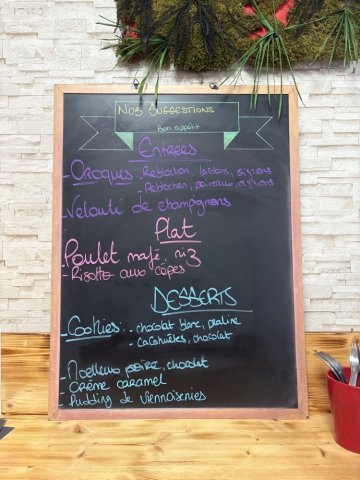 NOS SUGGESTIONS
Bon appétit
Entrées
- Croques . Reblochon, lardons, oignons
- Reblochon, poireaux, oignons
- Velouté de champignons
Plat
- Poulet mafé, riz
- Risotto aux cèpes
DESSERTS
- Cookies . chocolat blanc, praline
- Cacahuètes, chocolat
- Moelleux poire, chocolat
- Crème caramel
- Pudding de viennoiseries